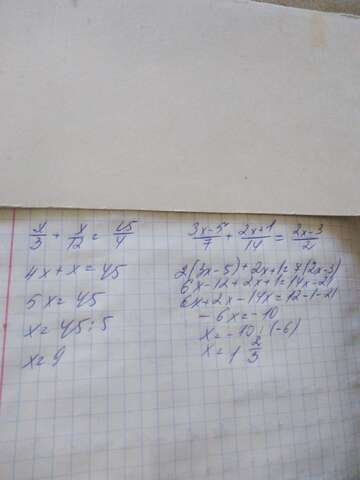 x/3 + x/12 = 15/4
4x + x = 45
5x = 45
x = 45 : 5
x = 9
3x-5/7 + 2x+1/14 = 2x-3/2
2(3x-5) + 2x+1 = 7(2x-3)
6x-12+2x+1=14x-21
6x+2x-14x=12-1-21
-6x=-10
x=-10:(-6)
x=1 2/3